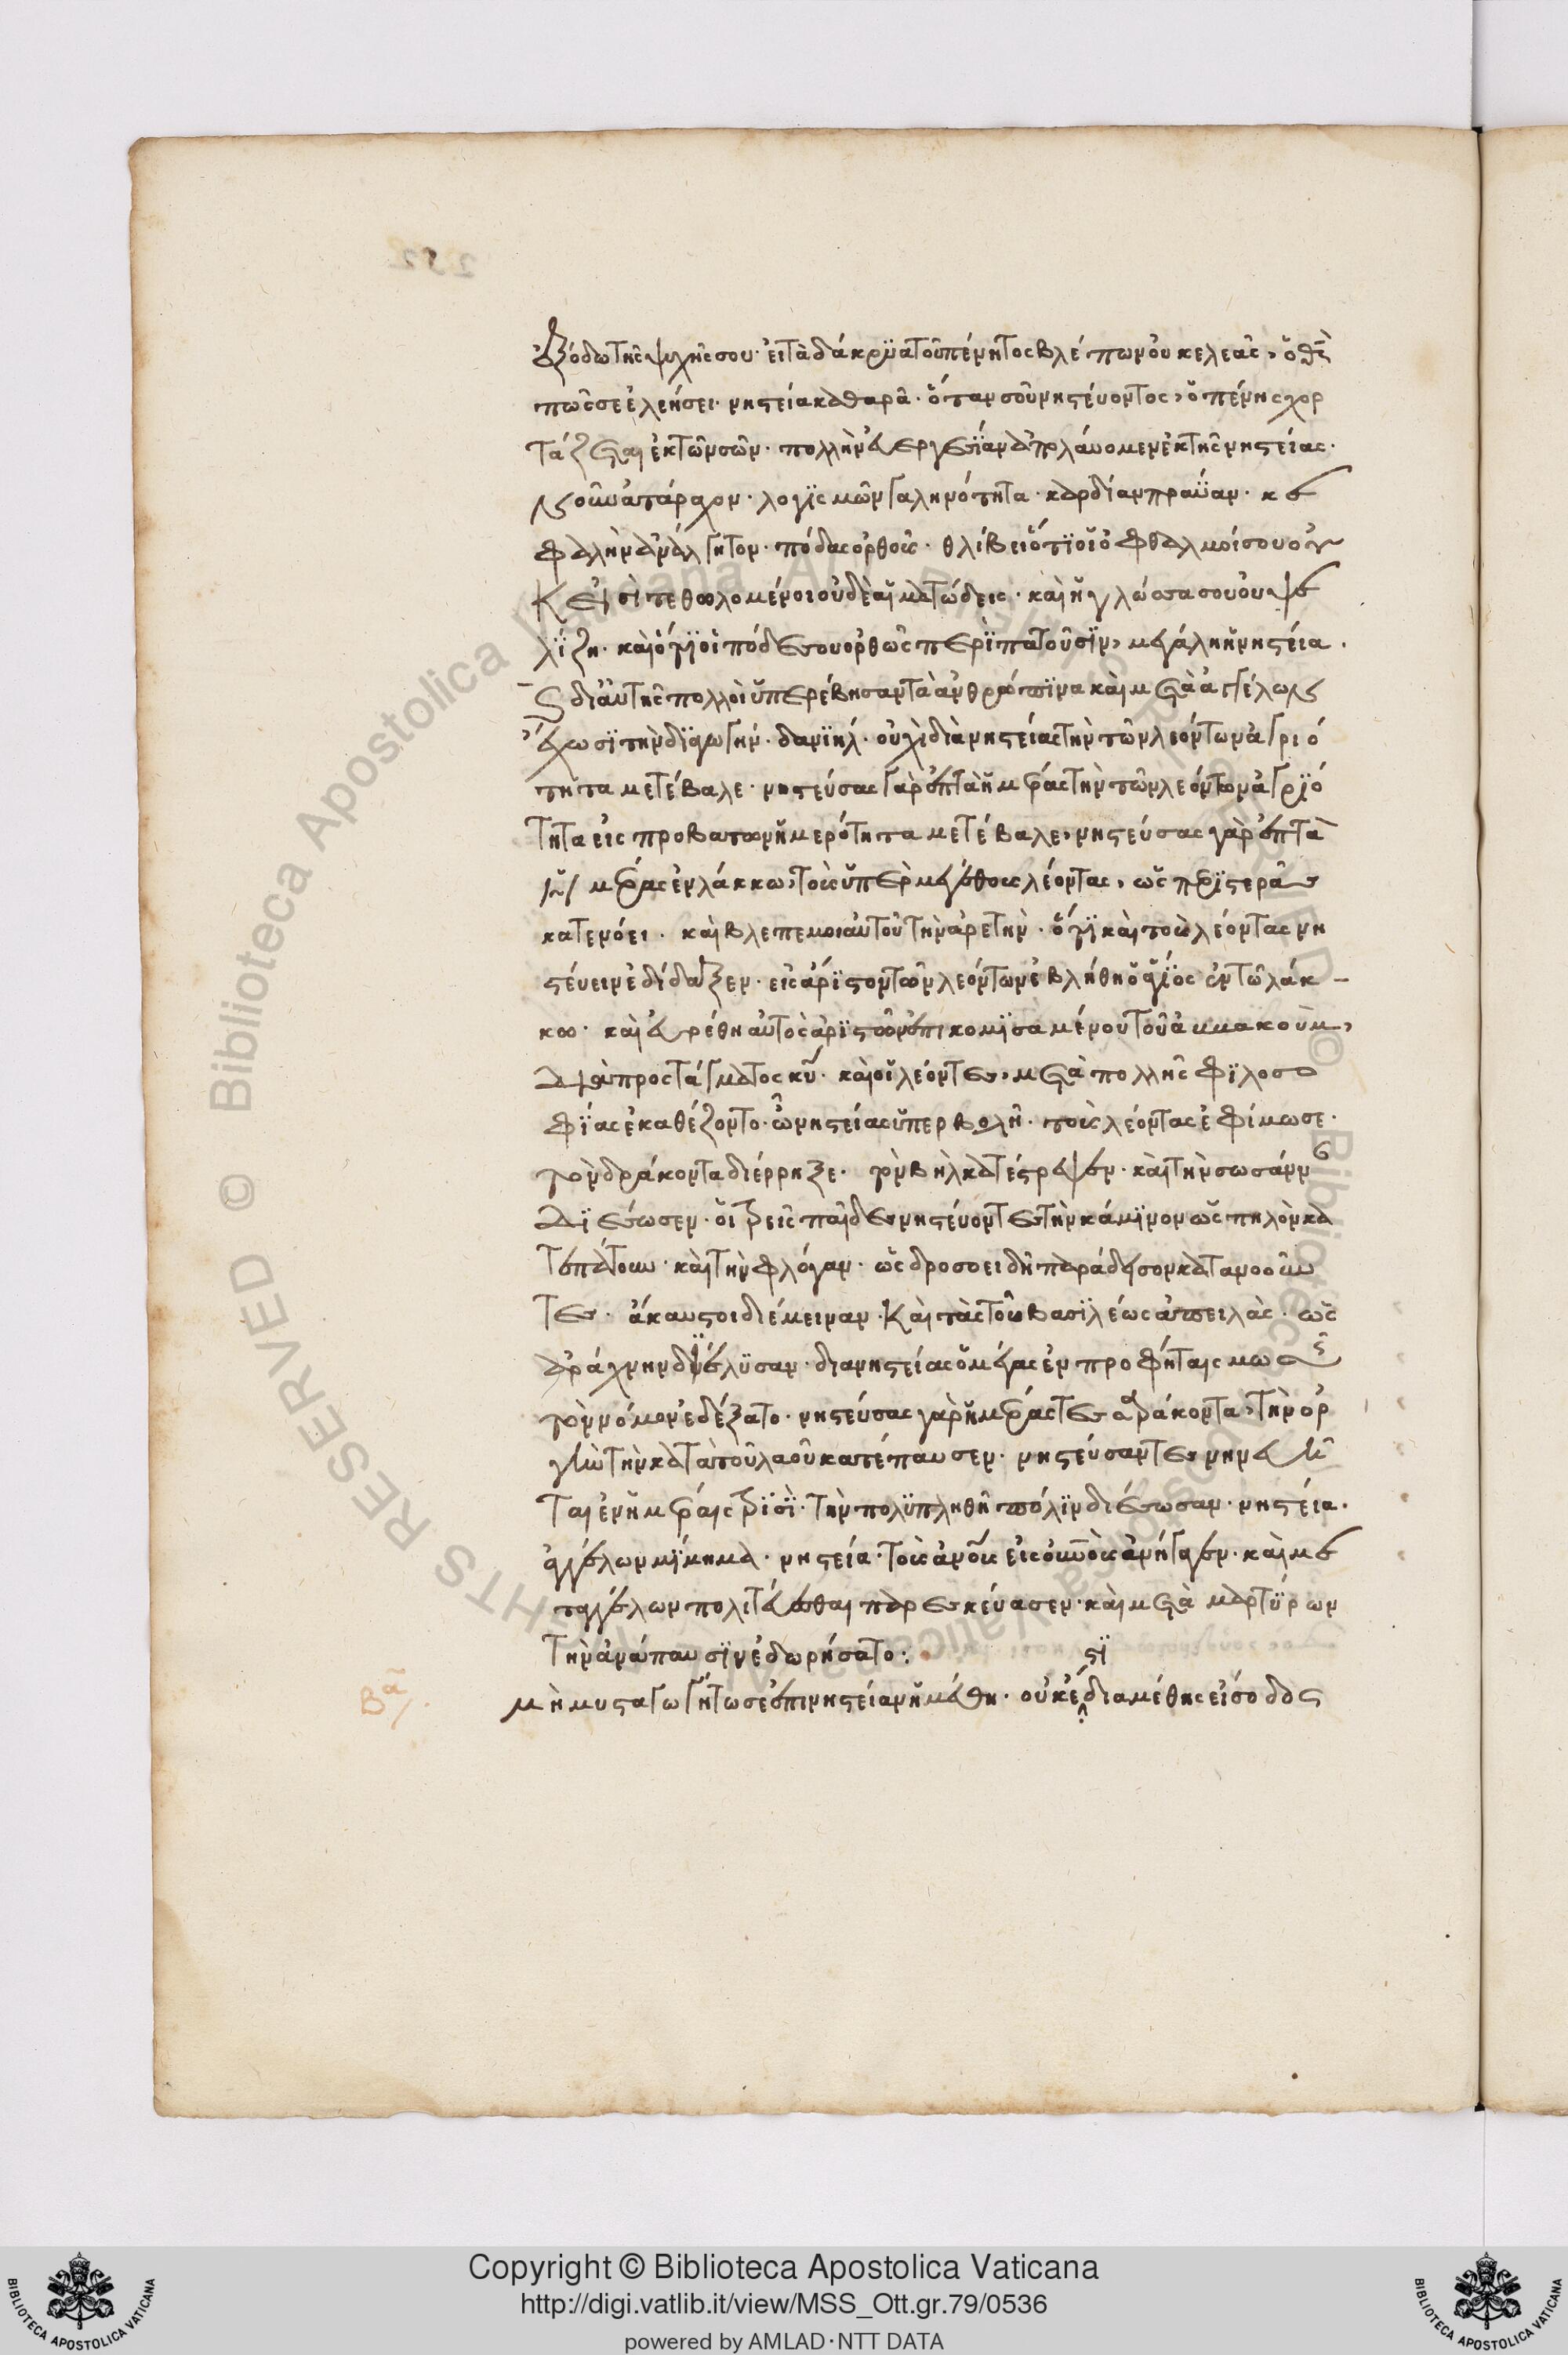 ἐξόδω τῆς ψυχῆς σου· εἰ τὰ δάκρϋα τοῦ πένητος βλέπων οὐκ ἐλεᾶς, ὁ θς
πῶς σε ἐλεήσει· νηστεία καθαρᾶ· ὅταν σοῦ νηστέυοντος, ὁ πένης χορ
τάζεται ἐκ τῶν σῶν· πολλὴν εὐεργεσΐαν ἀπολάυομεν ἐκ τῆς νηστείας·
νοῦν ἀτάραχον· λογϊσμῶν γαληνότητα· καρδίαν πραϋαν· κε
φαλὴν ἀνάλγητον· πόδας ὀρθούς· θλίβει ὅτϊ οἱ ὀφθαλμοί σου οὐ
κ εἰσὶ τεθολομένοι οὐδὲ αἱματώδεις· καὶ ἡ γλώσσα σου οὐ ψε
λΐζη· καὶ ὅτϊ οἱ πόδες σου ὀρθῶς περϊπατοῦσϊν, μεγάλη ἡ νηστεία·
δι' αὐτῆς πολλοὶ ὑπερέβησαν τὰ ἀνθρώπϊνα καὶ μετὰ ἀγγέλων
ἔχωσϊ τὴν δϊαγωγήν· δανϊὴλ· οὐχὶ διὰ νηστείας τὴν τῶν λεόντων ἀγριό
τητα μετέβαλε· νηστεύσας γὰρ ἑπτὰ ἡμέρας τὴν τῶν λεόντων ἀγρϊό
τητα εἰς προβάτων ἡμερότητα μετέβαλε, νηστεύσας γὰρ ἑπτὰ
ἡμέρας ἐν λάκκω, τοὺς ὑπερμεγέθοις λέοντας, ὡς πρϊστερὰς
κατενόει· καὶ βλεπε μοι αὐτοῦ τὴν ἀρετὴν· ὅτϊ καὶ τοὺς λέοντας νη
στέυειν ἐδίδαξεν· εἰς ἀρϊστον τῶν λεόντων ἐβλήθη ὁ ἅγϊος ἐν τῶ λάκ
κω· καὶ εὑρέθη αὐτὸς ἀρϊστῶν ἐπικομϊσαμένου τοῦ ἀμμακοὺμ,
ἀπὸ προστάγματος κυ· καὶ οἱ λέοντες, μετὰ πολλῆς φϊλοσο
φΐας ἐκαθέζοντο· ὢ νηστείας ὑπερβολῆ· τοὺς λέοντας ἐφίμωσε·
τὸν δράκοντα διέρρηξε· τὸν βὴλ κατέστρεψεν· καὶ τὴν σωσάνν
αν διέσωσεν· οἱ τρεῖς παῖδες νηστέυοντες τὴν κάμϊνον ὡς πηλὸν κα
τεπάτουν· καὶ τὴν φλόγαν· ὡς δροσοειδῆ παράδεισον κατανοοῦν
τες· ἄκαυστοι διέμειναν· Καὶ τὰς τοῦ βασϊλέως ἀπειλὰς· ὡς
ἀράχνην διέλϋσαν· διὰ νηστείας ὁ μέγας ἐν προφήταις μωσῆς
τὸν νόμον ἐδέξατο· νηστεύσας γὰρ ἡμέρας τεσσαράκοντα, τὴν ὀρ
γὴν τὴν κατὰ τοῦ λαοῦ κατέπαυσεν· νηστεύσαντες νηνευῖ
ται ἐν ἡμέραις τρϊσὶ· τὴν πολϋπληθῆ πόλϊν διέσωσαν· νηστεία·
ἀγγέλων μϊμημα· νηστεία· τοὺς ἀνους εἰς οὐνοὺς ἀνήγαγεν· καὶ με
τ' ἀγγέλων πολιτεύεσθαι παρεσκέυασεν· καὶ μετὰ μαρτϋρων
τὴν ἀνάπαυσϊν ἐδωρήσατο:
Βα
μὴ μυσταγωγήτω σε ἐπὶ νηστείαν ἡ μέθη· οὐκ ἔστϊ διὰ μέθης εἴσοδος
Copyright © Biblioteca Apostolica Vaticana
http://digi.vatlib.it/view/MSS_Ott.gr.79/0536
powered by AMLAD·NTT DATA
BIBLIOTECA APOSTOLICA VATICANA
BIBLIOTECA APOSTOLICA VATICANA